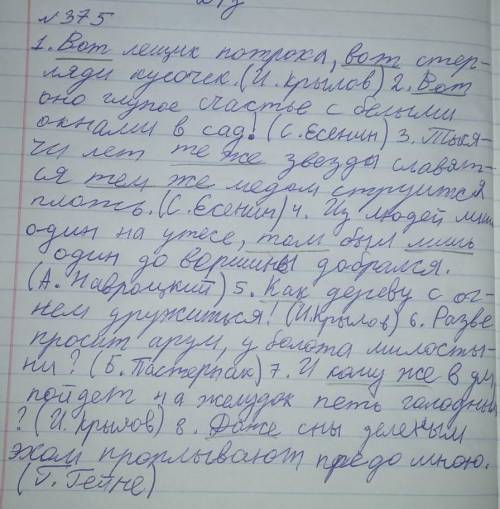 №375
1. Вот лещик потроха, вот стер-
ляди кусочек. (И. Крылов) 2. Вот
оно глупое счастье с белыми
окнами в сад! (С. Есенин) 3. Тыся-
чи лет те же звезды славят-
ся тем же медом струится
плоть. (С. Есенин) 4. Из людей лишь
один на утесе, том был лишь
один до вершины добрался.
(А. Навроцкий) 5. Как дереву с ог-
нем дружиться! (И. Крылов) 6. Разве
просит арум, у болота милосты-
ни? (Б. Пастернак) 7. И кому же в ум
пойдет на желудок петь голодный
? (И. Крылов) 8. Даже сны зеленым
эхом проплывают предо мною.
(Г. Гейне)